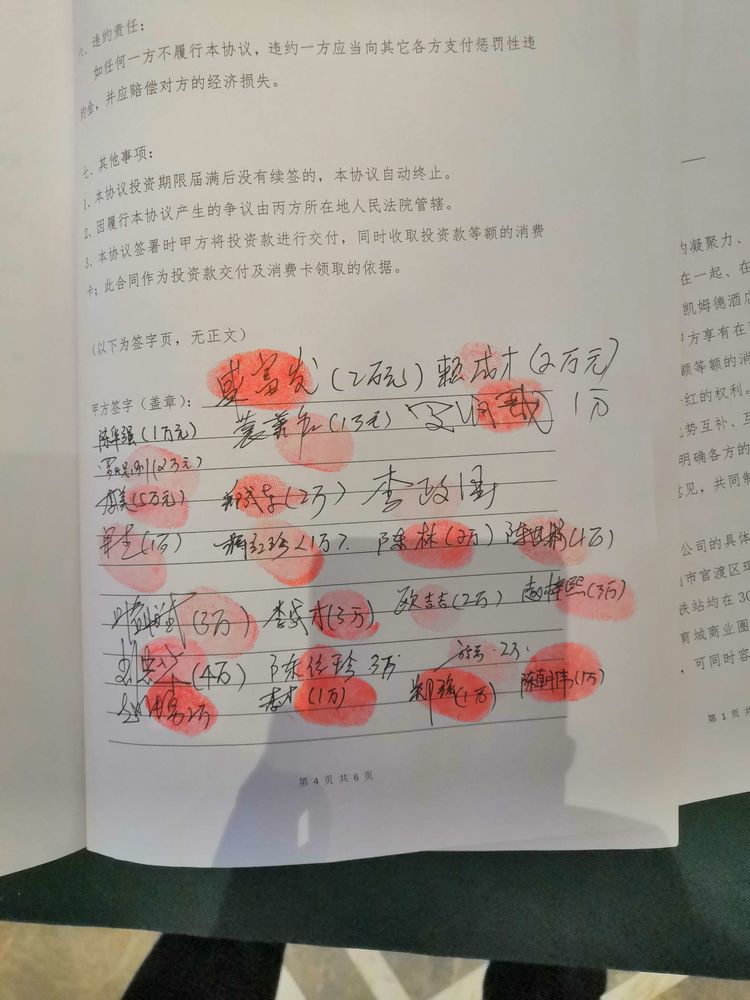 六、违约责任：
如任何一方不履行本协议，违约一方应当向其它各方支付惩罚性违
约金，并应赔偿对方的经济损失。
七、其他事项：
1、本协议投资期限届满后没有续签的，本协议自动终止。
2、因履行本协议产生的争议由丙方所在地人民法院管辖。
3、本协议签署时甲方将投资款进行交付，同时收取投资款等额的消费
卡；此合同作为投资款交付及消费卡领取的依据。
（以下为签字页，无正文）
盛富发（2万元）赖成才（2万元）
甲方签字（盖章）：
陈华强（1万元）（1万元）1万
（2万元）
李美（5万元）（2万）李政国
（1万）（1万）陈林（2万）（4万）
（3万）李成才（3万）欧吉吉（2万）（3万）
（4万）陈位珍 3万 2万
2万 李才（1万）郑强（1万）陈朝伟（1万）
第 4 页 共 6 页
的凝聚力、
在一起、在
凯姆德酒店
方享有在
额等额的消
红的权利。
势互补、互
明确各方的
意见，共同制
公司的具体
市官渡区环
铁站均在 30
育城商业圈
，可同时容
第 1 页 共